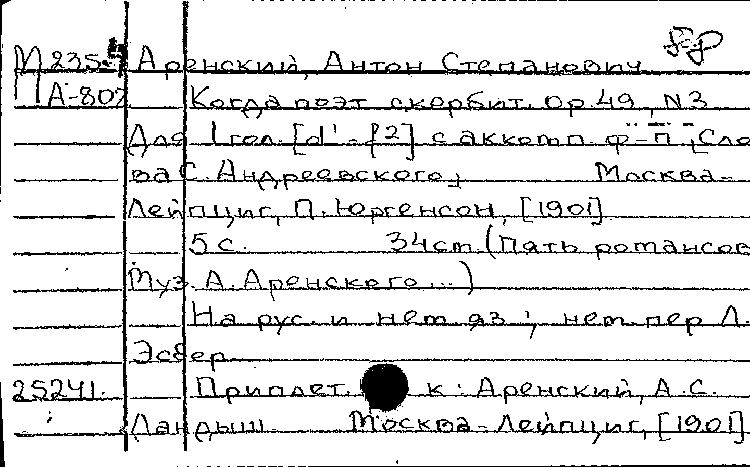 М 235-4 Аренский, Антон Степанович
А-802 Когда поэт скорбит. Ор. 49, N 3
Для 1 гол. [d'-f²] с аккомп. ф-п., Сло
ва С. Андреевского. Москва-
Лейпциг, П. Юргенсон, [1901]
5 с. 34 cm. (Пять романсов
Муз. А. Аренского...)
На рус. и нем. яз.; нем. пер. Л.
Эсбер
25241. Приплет. к: Аренский, А. С.
Ландыш. Москва-Лейпциг, [1901]